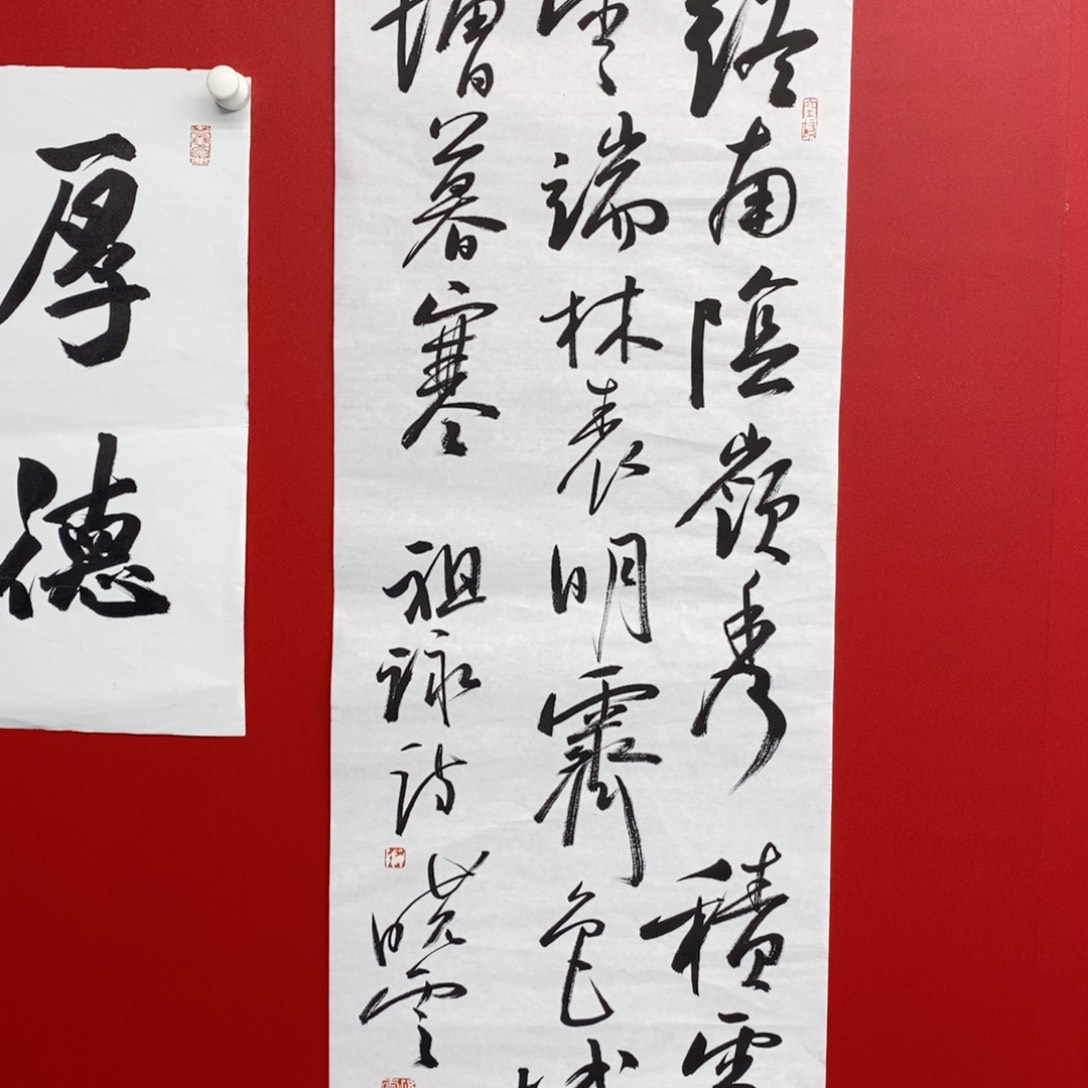 終南陰嶺秀積雪
雲端林表明霽色城
增暮寒
祖詠詩
曉雲
厚德